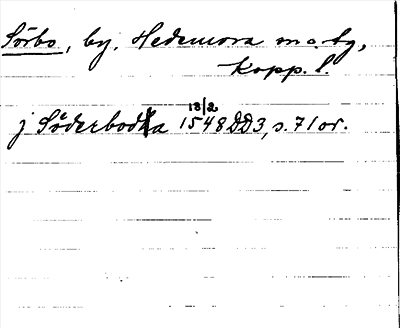 Sörbo, by. Hedemora m o. tg,
Kopp. l.
18/2
j Söderbodha 1548 DD3, s. 71 or.